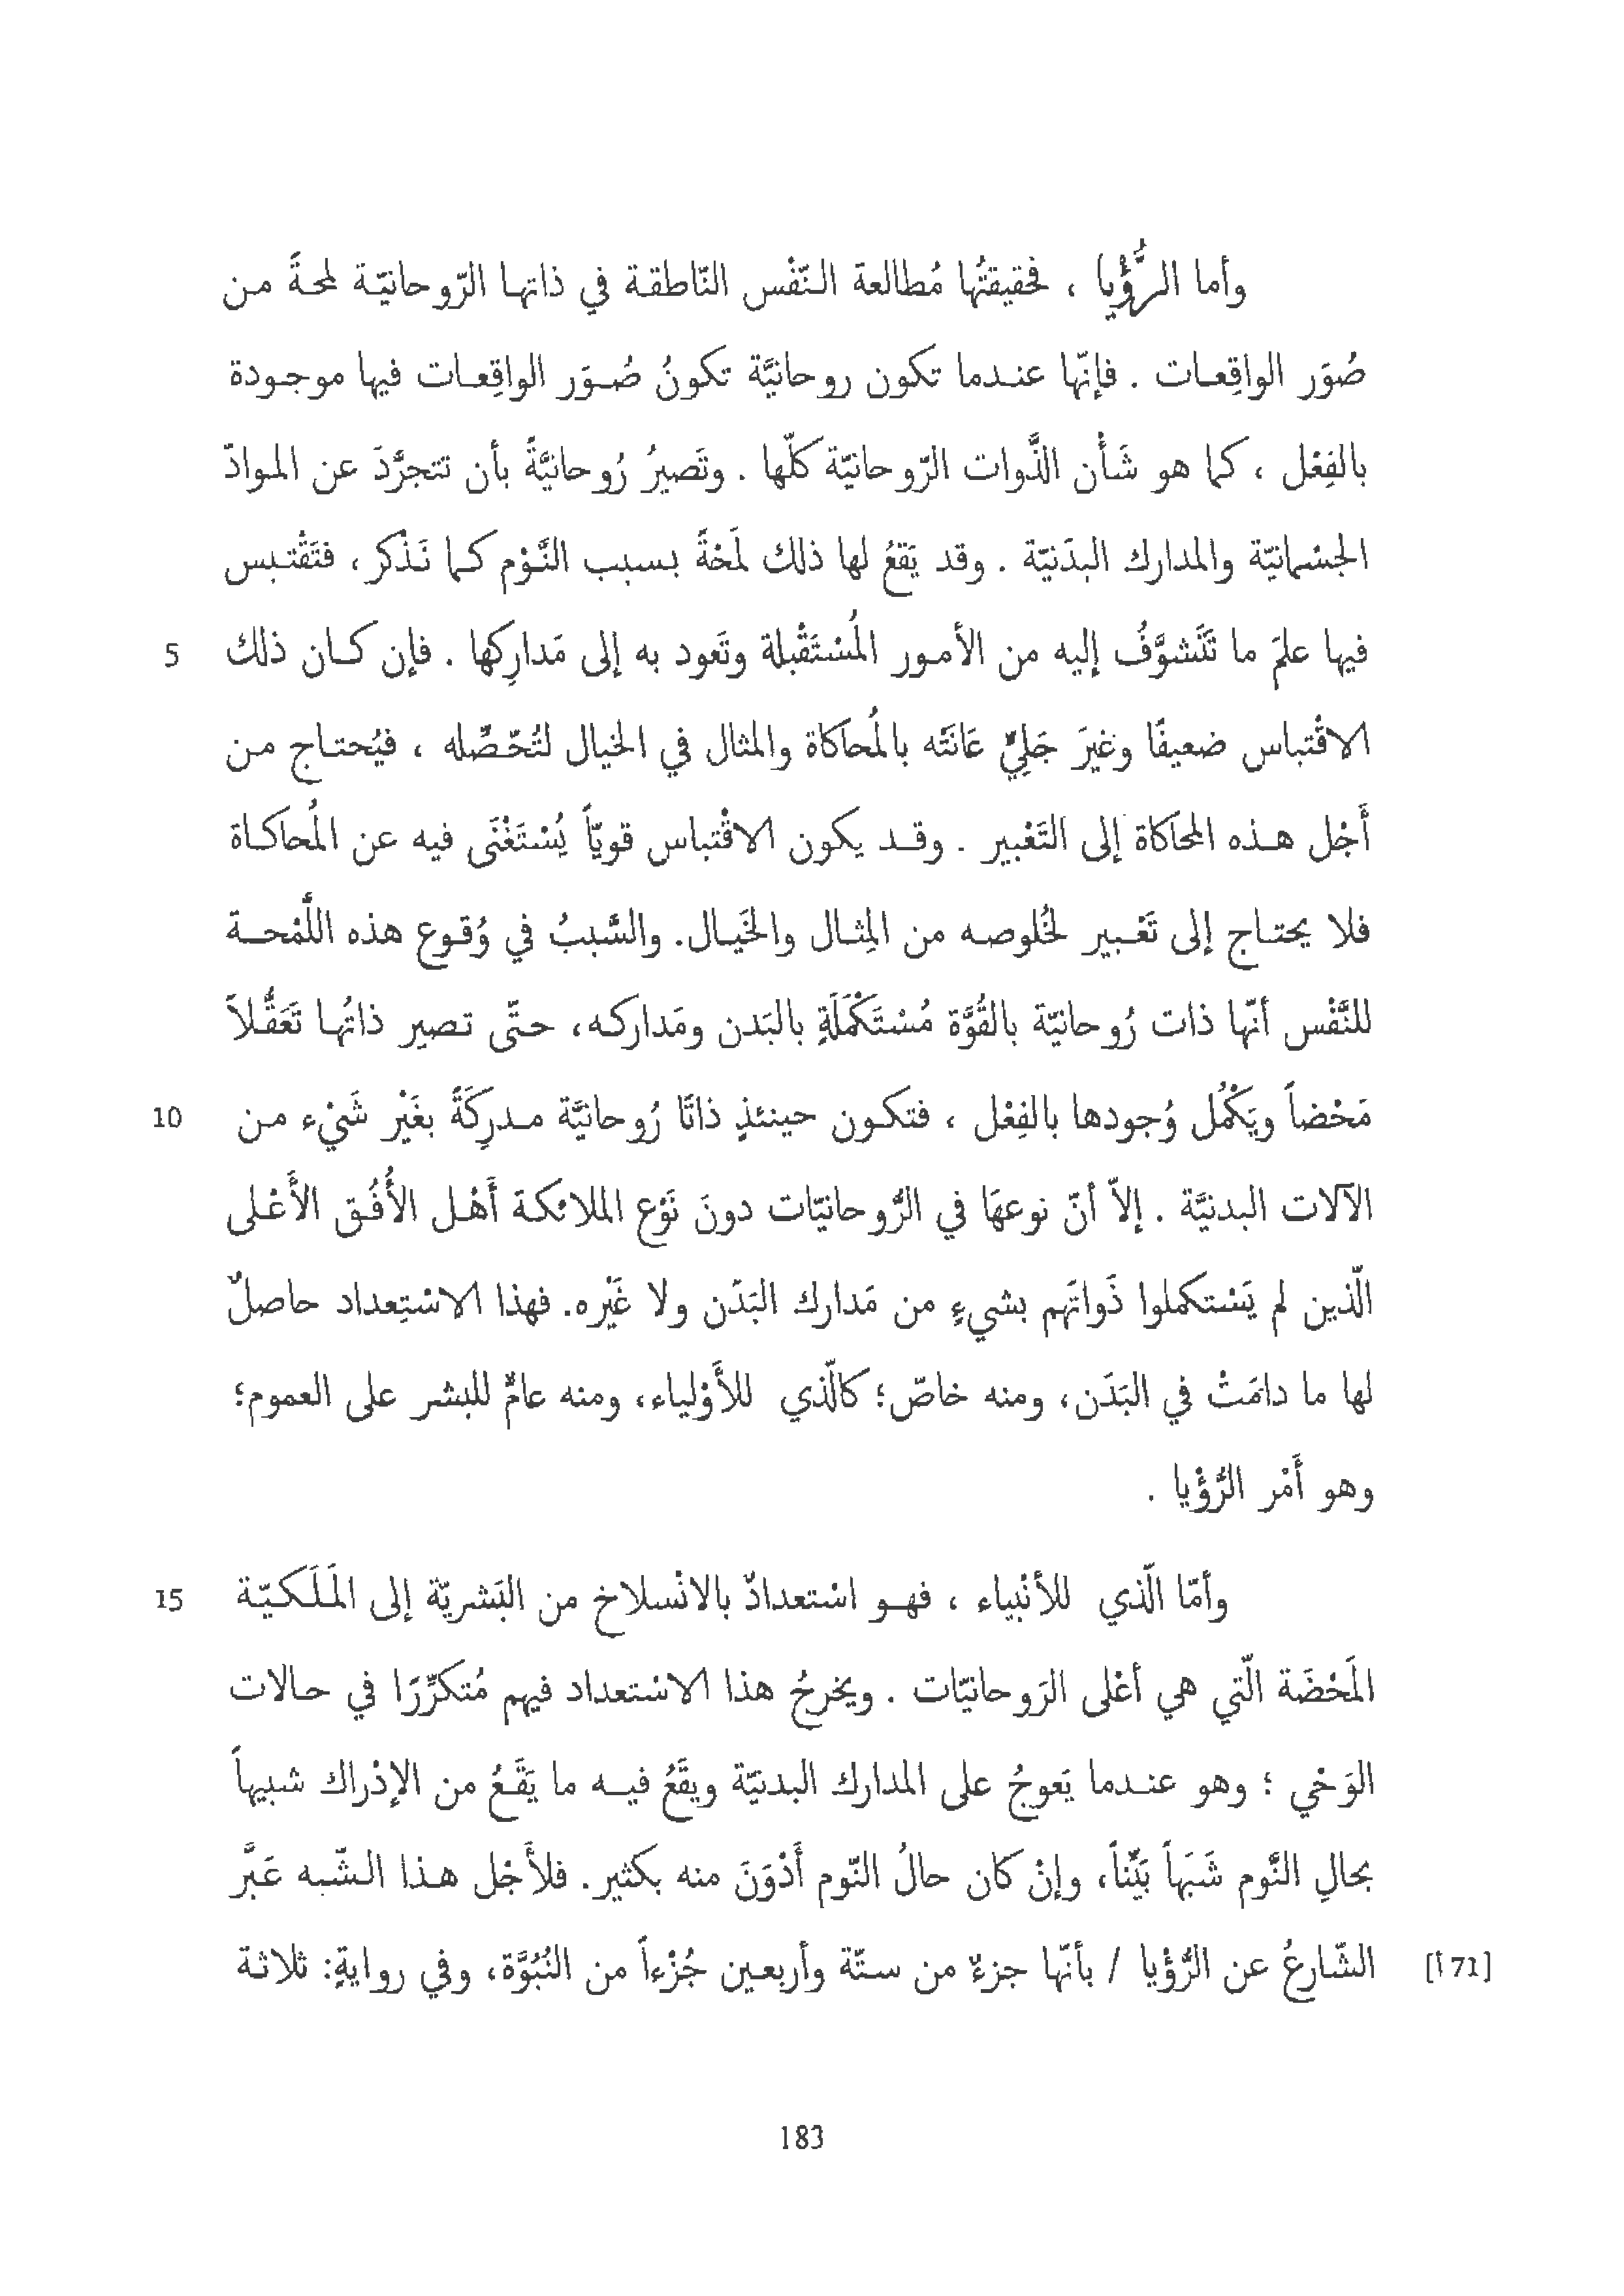 وأما الرُّؤْيا ، فحقيقتُها مُطالعة النّفْس النّاطقة في ذاتها الرّوحانيّة لمحةً من
صُوَر الواقِعات . فإنّها عندما تكون روحانيَّة تكونُ صُوَر الواقِعات فيها موجودة
بالفِعْل ، كما هو شَأْن الذَّوات الرّوحانيّة كلّها . وتَصيرُ رُوحانيَّةً بأن تتجرَّدَ عن الموادّ
الجسْمانيّة والمدارك البدَنيّة . وقد يَقعُ لها ذلك لَمْحَةً بسبب النَّوْم كما نَذْكر ، فتَقْتبس
5 فيها علمَ ما تَتَشوَّفُ إليه من الأمور المُسْتَقْبلة وتَعود به إلى مَدارِكها . فإن كان ذلك
الاقْتباس ضعيفًا وغيرَ جَلِيٍّ عَانَته بالمُحاكاة والمثال في الخيال لتُحّصِّله ، فيُحتاج من
أَجْل هذه المحاكاة إلى التَعْبير . وقد يكون الاقْتباس قويّاً يُسْتَغْنَى فيه عن المُحاكاة
فلا يحتاج إلى تَعْبير لخُلوصه من المِثال والخَيال. والسَّببُ في وُقوع هذه اللَّمْحة
للنَّفْس أنّها ذات رُوحانيّة بالقُوَّة مُسْتَكْمَلَةٍ بالبَدن ومَداركه، حتّى تصير ذاتُها تَعَقُّلاً
10 مَحْضاً ويَكْمُل وُجودها بالفِعْل ، فتكون حينئذٍ ذاتًا رُوحانيَّة مدرِكَةً بغَيْر شَيْء من
الآلات البدنيَّة . إلاّ أنّ نوعهَا في الرُّوحانيّات دونَ نَوْع الملائكةَ أَهْل الأُفُق الأَعْلى
الّذين لم يَسْتكملوا ذَواتَهم بشيءٍ من مَدارك البَدَن ولا غَيْره. فهذا الاسْتِعداد حاصلٌ
لها ما دامَتْ في البَدَن، ومنه خاصّ؛ كالّذي للأوْلياء، ومنه عامٌّ للبشر على العموم؛
وهو أَمْر الرُّؤْيا .
15 وأمّا الّذي للأنْبياء ، فهو اسْتعدادٌ بالانْسلاخ من البَشريّة إلى المَلَكيّة
المَحْضَة الّتي هي أعْلى الرَوحانيّات . ويخرجُ هذا الاسْتعداد فيهم مُتكرِّرًا في حالات
الوَحْي ؛ وهو عندما يَعوجُ على المدارك البدنيّة ويقَعُ فيه ما يَقَعُ من الإدْراك شبيهاً
بحالِ النَّوم شَبَهاً بَيّناً، وإنْ كان حالُ النّوم أَدْوَنَ منه بكثير. فلأَجْل هذا الشّبه عَبَّر
[71 أ] الشّارعُ عن الرُّؤيا / بأنّها جزءٌ من ستّة وأربعين جُزْءاً من النُبُوَّة، وفي روايةٍ: ثلاثة
183